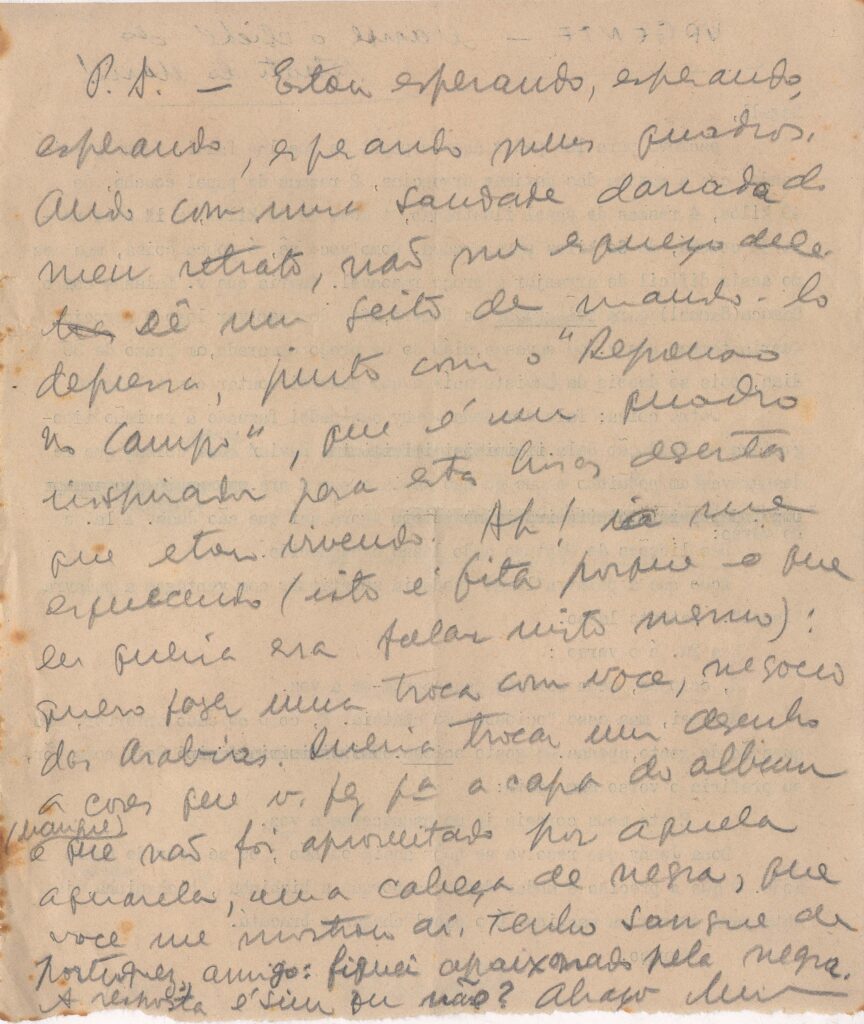 P.S. — Estou esperando, esperando,
esperando, esperando meus quadros.
Ando com uma saudade danada do
meu retrato, não me esqueço dele.
Dê um jeito de mando-lo
depressa, junto com o "Repouso
no campo", que é um quadro
inspirador para estas horas desertas
que estou vivendo. Ah! ia me
esquecendo (isto é fita porque o que
eu queria era falar nisto mesmo):
quero fazer uma troca com voce, negocio
das Arabias. Queria trocar um desenho
a cores que v. fez pa a capa do album
(Mangue)
e que não foi aproveitado por aquela
aquarela, uma cabeça de negra, que
voce me mostrou aí. Tenho sangue de
portugues, amigo: fiquei apaixonado pela negra.
A resposta é sim ou não? Abraço